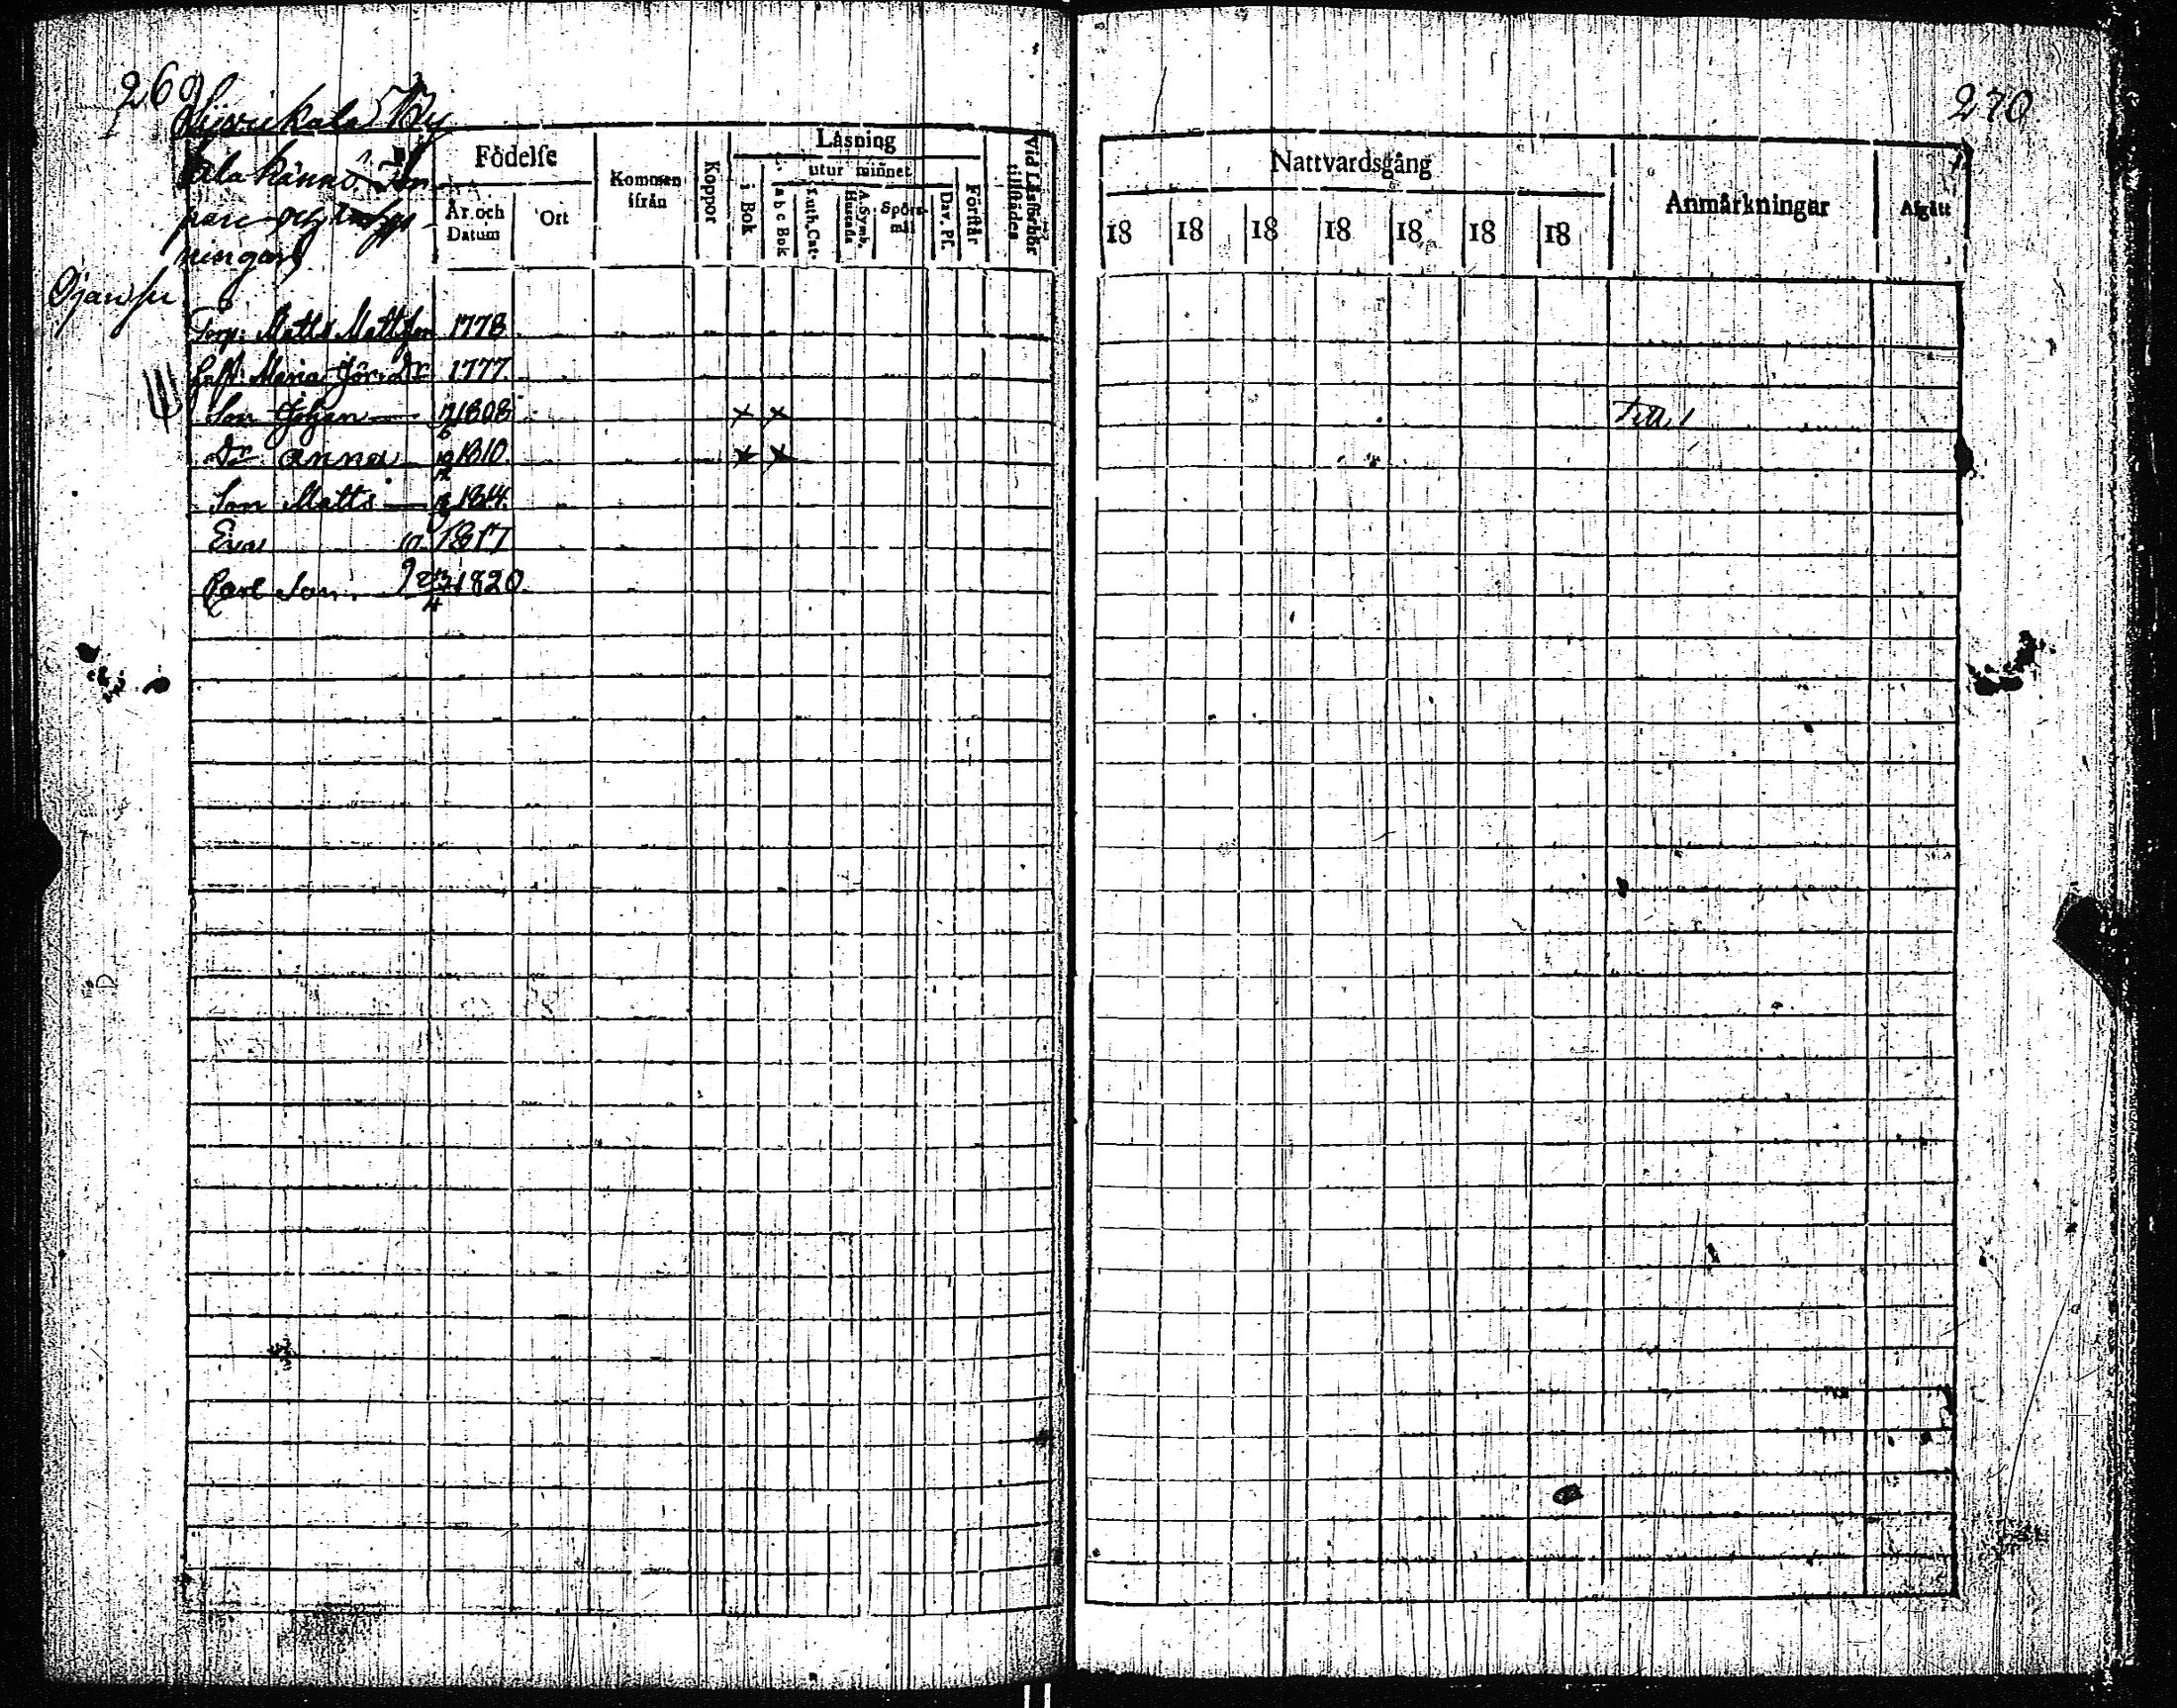 269
By
Födelse
År och Datum
Ort
Kommen ifrån
Koppor
Läsning
i Bok
utur minnet
a b c Bok
Luth. Cat.
A. Symb. Hustafla
Spörsmål
Dav. Ps.
Förstår
Vid Läsförhör tillstädes
ningar
Torp: Matts Mattsson 1778
Hust: Maria Jör. Dr 1777.
Son Johan 1808 × ×
Dr Anna 1810. × ×
Son Matts 1814.
Eva 1817
Carl Son 23/4 1820.
270.
Nattvardsgång
18 18 18 18 18 18 18
Anmärkningar
Afgått